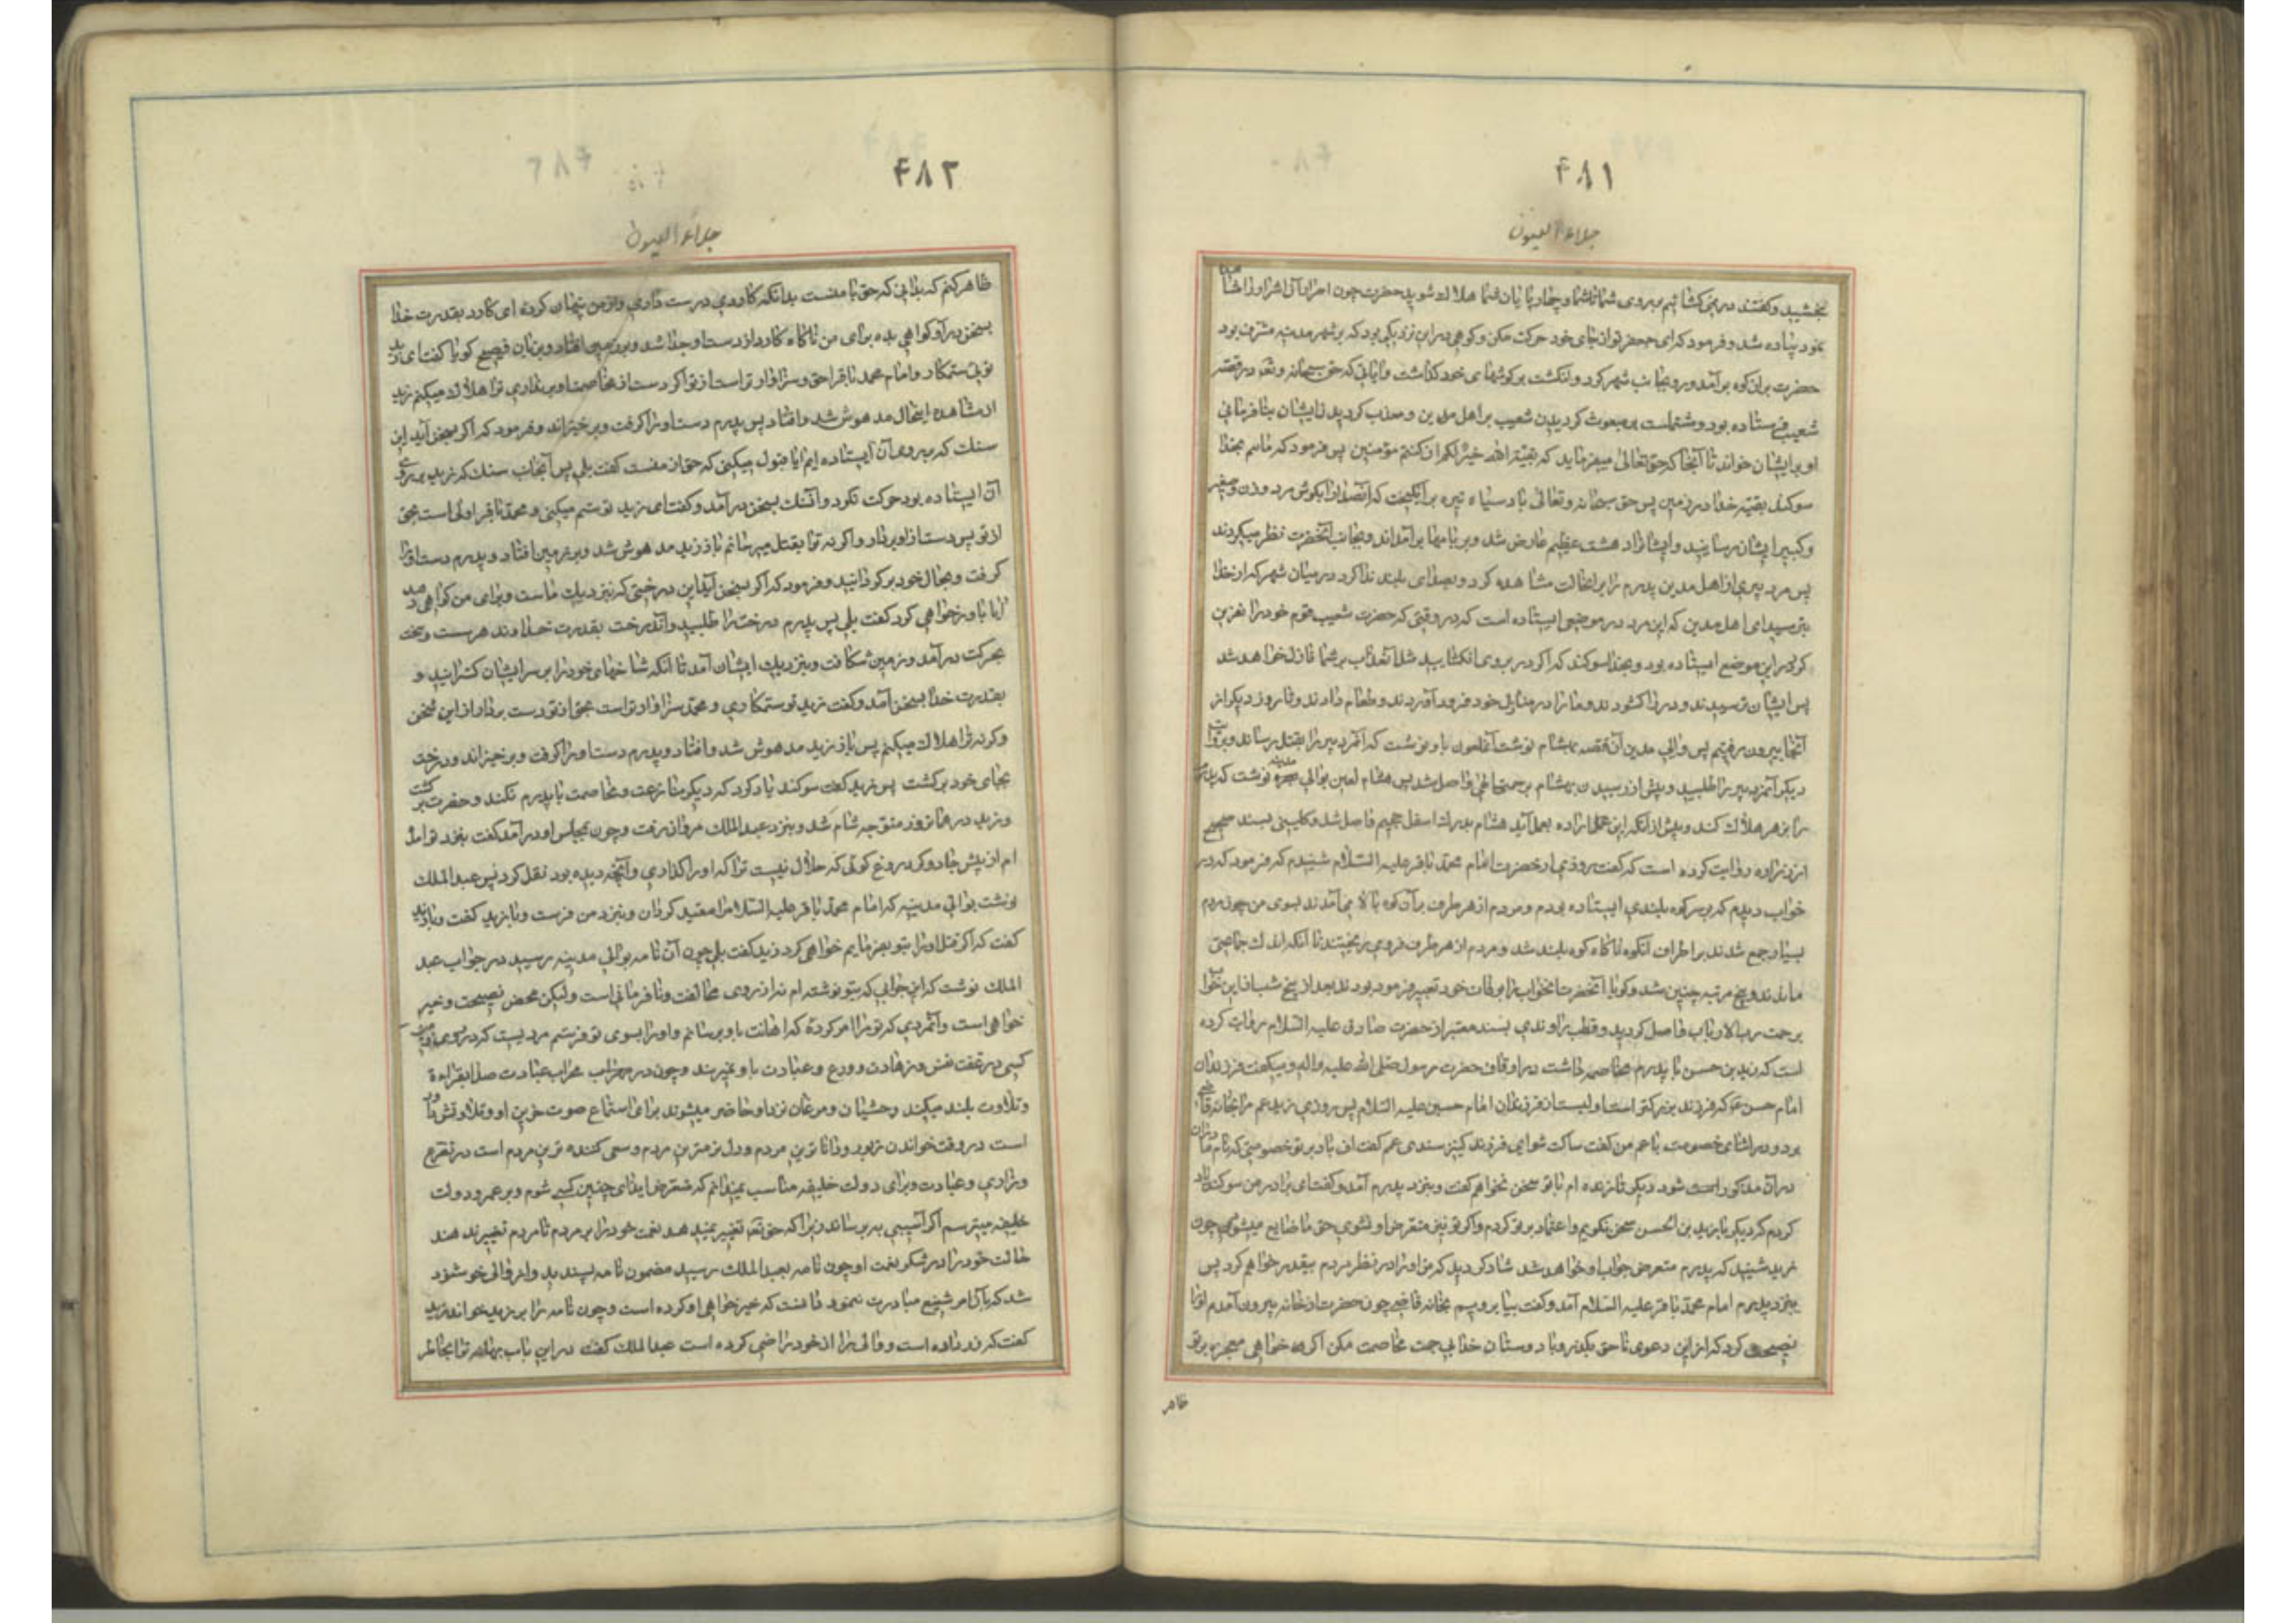 ۴۸۱
جلاء العیون
بخشید و گفتند در نمی‌گشائیم بر روی شما تا شما و چهارپایان شما هلاک شوید حضرت چون اصرار آن اشرار را مشاهده
نمود پیاده شد و فرمود که ای جعفر تو از جای خود حرکت مکن و کوهی در آن نزدیکی بود که بر شهر مدین مشرف بود
حضرت بر آن کوه برآمد و رو بجانب شهر کرد و انگشت بر گوشهای خود گذاشت و آیاتی که حق سبحانه و تعالی در قصه
شعیب فرستاده بود و مشتملست بر مبعوث گردیدن شعیب بر اهل مدین و معذب گردیدن ایشان بنافرمانی
او بر ایشان خواند تا آنجا که حق تعالی میفرماید که بقیة الله خیر لکم ان کنتم مؤمنین پس فرمود که مائیم بخدا
سوگند بقیه خدا در زمین پس حق سبحانه و تعالی باد سیاه تیره برانگیخت که آن صدا را بگوش مرد و زن و صغیر
و کبیر ایشان رسانید و ایشان را دهشت عظیم عارض شد و بر بامها برآمدند و بجانب آنحضرت نظر میکردند
پس مرد پیری از اهل مدین پدرم را بر آنحالت مشاهده کرد و بصدای بلند ندا کرد در میان شهر که از خدا
بترسید ای اهل مدین که این مرد در موضعی ایستاده است که در وقتی که حضرت شعیب قوم خود را نفرین
کرد در این موضع ایستاده بود و بخدا سوگند که اگر در بروی او نگشایید مثل آن عذاب بر شما نازل خواهد شد
پس ایشان ترسیدند و در را گشودند و ما را در منازل خود فرود آوردند و طعام دادند و ما روز دیگر از
آنجا بیرون رفتیم پس والی مدین آن قصه بهشام نوشت آن ملعون باو نوشت که آنمرد پیر را بقتل رساند و بروایت
دیگر آنمرد پیر را طلبید و پیش از رسیدن بهشام برحمت الهی واصل شد پس هشام لعین بوالی مدینه نوشت که پدرم
را بزهر هلاک کند و پیش از آنکه این عمل اراده بعمل آید هشام بدرک اسفل جحیم واصل شد و کلینی بسند صحیح
از زراره روایت کرده است که گفت روزی از حضرت امام محمد باقر علیه السلام شنیدم که فرمود که در
خواب دیدم که بر سر کوه بلندی ایستاده بودم و مردم از هر طرف بر آن کوه بالا می‌آمدند بسوی من چون مردم
بسیار جمع شدند بر اطراف آنکوه ناگاه کوه بلند شد و مردم از هر طرف فرو می‌ریختند تا آنکه اندک جماعتی
ماندند و پنج مرتبه چنین شد و گویا آنحضرت آنخواب را بوفات خود تعبیر فرموده بودند بعد از پنج شب از این خواب
برحمت رب الارباب واصل گردید و قطب راوندی بسند معتبر از حضرت صادق علیه السلام روایت کرده
است که زید بن حسن با پدرم مخاصمه داشت در اوقاف حضرت رسول صلی الله علیه و اله و میگفت فرزندان
امام حسن ع که فرزند بزرگتر است اولیست از فرزندان امام حسین علیه السلام پس روزی زید عم مرا بخانه قاضی
برد و در اثنای خصومت با عم من گفت ساکت شو ای فرزند کنیز سندی عم گفت اف باد بر تو خصومتی که نام مادران
در آن مذکور است شود دیگر تا زنده ام با تو سخن نخواهم گفت و بنزد پدرم آمد و گفت ای برادر من سوگند یاد
کردم که دیگر با زید بن الحسن سخن نگویم و اعتماد بر تو کردم و اگر تو نیز متعرض او نشوی حق ما ضایع میشود چون
زید شنید که پدرم متعرض جواب او خواهد شد شاد گردید که من او را در نظر مردم بیقدر خواهم کرد پس
بنزد پدرم امام محمد باقر علیه السلام آمد و گفت بیا برویم بخانه قاضی چون حضرت از خانه بیرون آمدم او را
نصیحت کرد که از این دعوی ناحق بگذر و با دوستان خدا بی جهت مخاصمت مکن اگر خواهی معجزه بر تو
ظاهر
۴۸۲
جلاء العیون
ظاهر کنم که بدانی که حق با منست بدانکه کاردی در ست داری و از من پنهان کرده ای کارد بقدرت خدا
بسخن درآ و گواهی بده برای من ناگاه کارد از دست او جدا شد و بر زمین افتاد و بزبان فصیح گویا گفت ای زید
توئی ستمکار و امام محمد باقر احق و سزاوارتر است از تو اگر دست از مخاصمت او بر نداری ترا هلاک میکنم زید
از مشاهده اینحال مدهوش شد و افتاد پس پدرم دست او را گرفت و برخیزاند و فرمود که اگر بسخن آید این
سنگ که بر روی آن ایستاده ایم آیا قبول میکنی که حق از منست گفت بلی پس آنجانب سنگ که زید بر روی
آن ایستاده بود حرکت کرد و آن سنگ بسخن درآمد و گفت ای زید تو ستم میکنی و محمد باقر اولی است بحق
از تو پس دست از او بردار و اگر نه ترا بقتل میرسانم باز زید مدهوش شد و بر زمین افتاد و پدرم دست او را
گرفت و بحال خود برگردانید و فرمود که اگر بسخن آید این درختی که نزدیک ماست و برای من گواهی دهد
آیا باور خواهی کرد گفت بلی پس پدرم درخت را طلبید و آندرخت بقدرت خداوند هر سست و سخت
بحرکت درآمد و زمین شکافت و بنزدیک ایشان آمد تا آنکه شاخهای خود را بر سر ایشان گسترانید و
بقدرت خدا بسخن آمد و گفت زید تو ستمکاری و محمد سزاوارتر است بحق از تو دست بردار از این سخن
و گرنه ترا هلاک میکنم پس باز زید مدهوش شد و افتاد و پدرم دست او را گرفت و برخیزاند و درخت
بجای خود برگشت پس زید گفت سوگند یاد کرد که دیگر منازعت و مخاصمت با پدرم نکند و حضرت برگشت
و زید در همانروز متوجه شام شد و بنزد عبدالملک مروان رفت و چون بمجلس او درآمد گفت بنزد تو آمده
ام از پیش جادوگر دروغ گوئی که حلال نیست ترا که او را گذاری و آنچه دیده بود نقل کرد پس عبدالملک
نوشت بوالی مدینه که امام محمد باقر علیه السلام را مقید گردان و بنزد من فرست و با زید گفت و با زید
گفت که اگر قتل او را بتو بفرمایم خواهی کرد زید گفت بلی چون آن نامه بوالی مدینه رسید در جواب عبد
الملک نوشت که این جوابی که بتو نوشته ام نه از روی مخالفت و نافرمانی است ولیکن محض نصیحت و خیر
خواهی است و آنمردی که تو مرا امر کرده که اهانت باو برسانم و او را بسوی تو فرستم مردیست که در روی زمین
کسی در عفت نفس و زهادت و ورع و عبادت باو نمیرسد و چون در محراب عبادت صدا بقرائت
و تلاوت بلند میکند وحشیان و مرغان نزد او حاضر میشوند برای استماع صوت حزین او و تلاوتش مانند
است در وقت خواندن زبور و داناترین مردم و دل نرمترین مردم و سعی کننده ترین مردم است در تضرع
و زاری و عبادت و برای دولت خلیفه مناسب نمیدانم که متعرض ایذای چنین کسی شوم و بر عمر و دولت
خلیفه میترسم اگر آسیبی به برساند زیرا که حق تعالی تغییر نمیدهد نعمت خود را بر مردم تا مردم تغییر ندهند
حالت خود را در شکر نعمت او چون نامه بعبدالملک رسید مضمون نامه پسندید و از والی خوشنود
شد که بآن امر شنیع مبادرت ننمود دانست که خیر خواهی او کرده است و چون نامه را بر زید خواند زید
گفت که زر داده است و والی را از خود راضی کرده است عبدالملک گفت در این باب بهانه ترا بخاطر